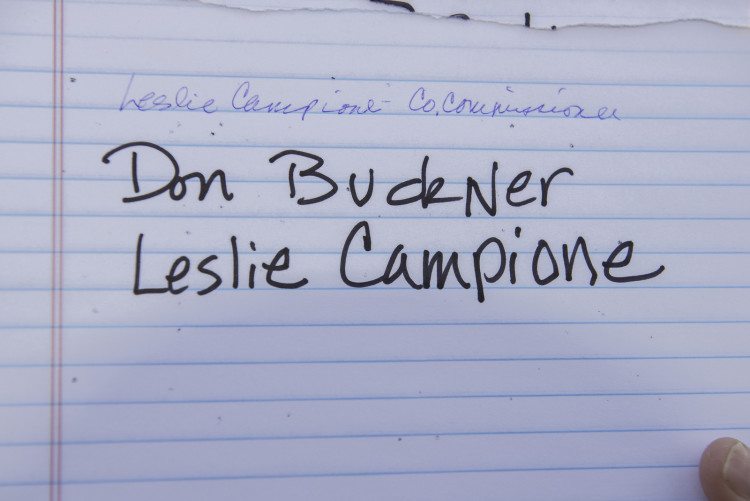 Leslie Campione - Co. Commissioner
Don Buckner
Leslie Campione